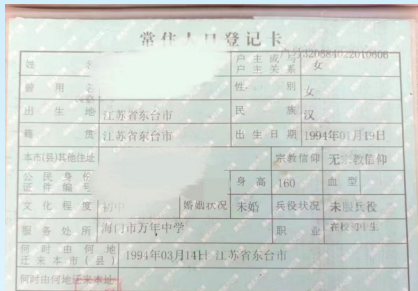 常住人口登记卡
户号320684022010606
姓 名 户主或与户主关系 女
曾用名 性别 女
出生地 江苏省东台市 民族 汉
籍贯 江苏省东台市 出生日期 1994年01月19日
本市(县)其他住址 宗教信仰 无宗教信仰
公民身份证件编号 身高 160 血型
文化程度 初中 婚姻状况 未婚 兵役状况 未服兵役
服务处所 海门市万年中学 职业 在校初中生
何时由何地迁来本市(县) 1994年03月14日 江苏省东台市
何时由何地迁来本址